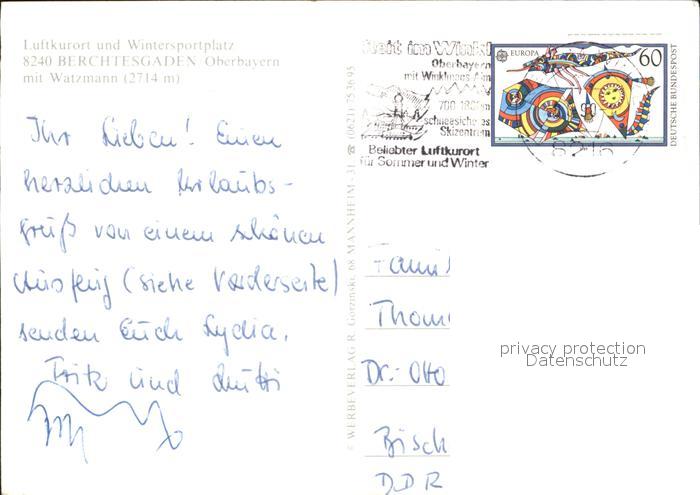 Luftkurort und Wintersportplatz
8240 BERCHTESGADEN Oberbayern
mit Watzmann (2714 m)
Ihr Lieben! Einen
herzlichen Urlaubs-
gruß von einem schönen
Ausflug (siehe Vorderseite)
senden Euch Lydia,
Fritz und Mutti
© WERBEVERLAG R. Gorzinski, 68 MANNHEIM-31
Reit im Winkl
Oberbayern
mit Winklmoos-Alm
700-1800m
schneesicheres
Skizentrum
Beliebter Luftkurort
für Sommer und Winter
8216
EUROPA
60
DEUTSCHE BUNDESPOST
Famil
Thom
Dr.-Otto
Bisch
DDR
privacy protection
Datenschutz